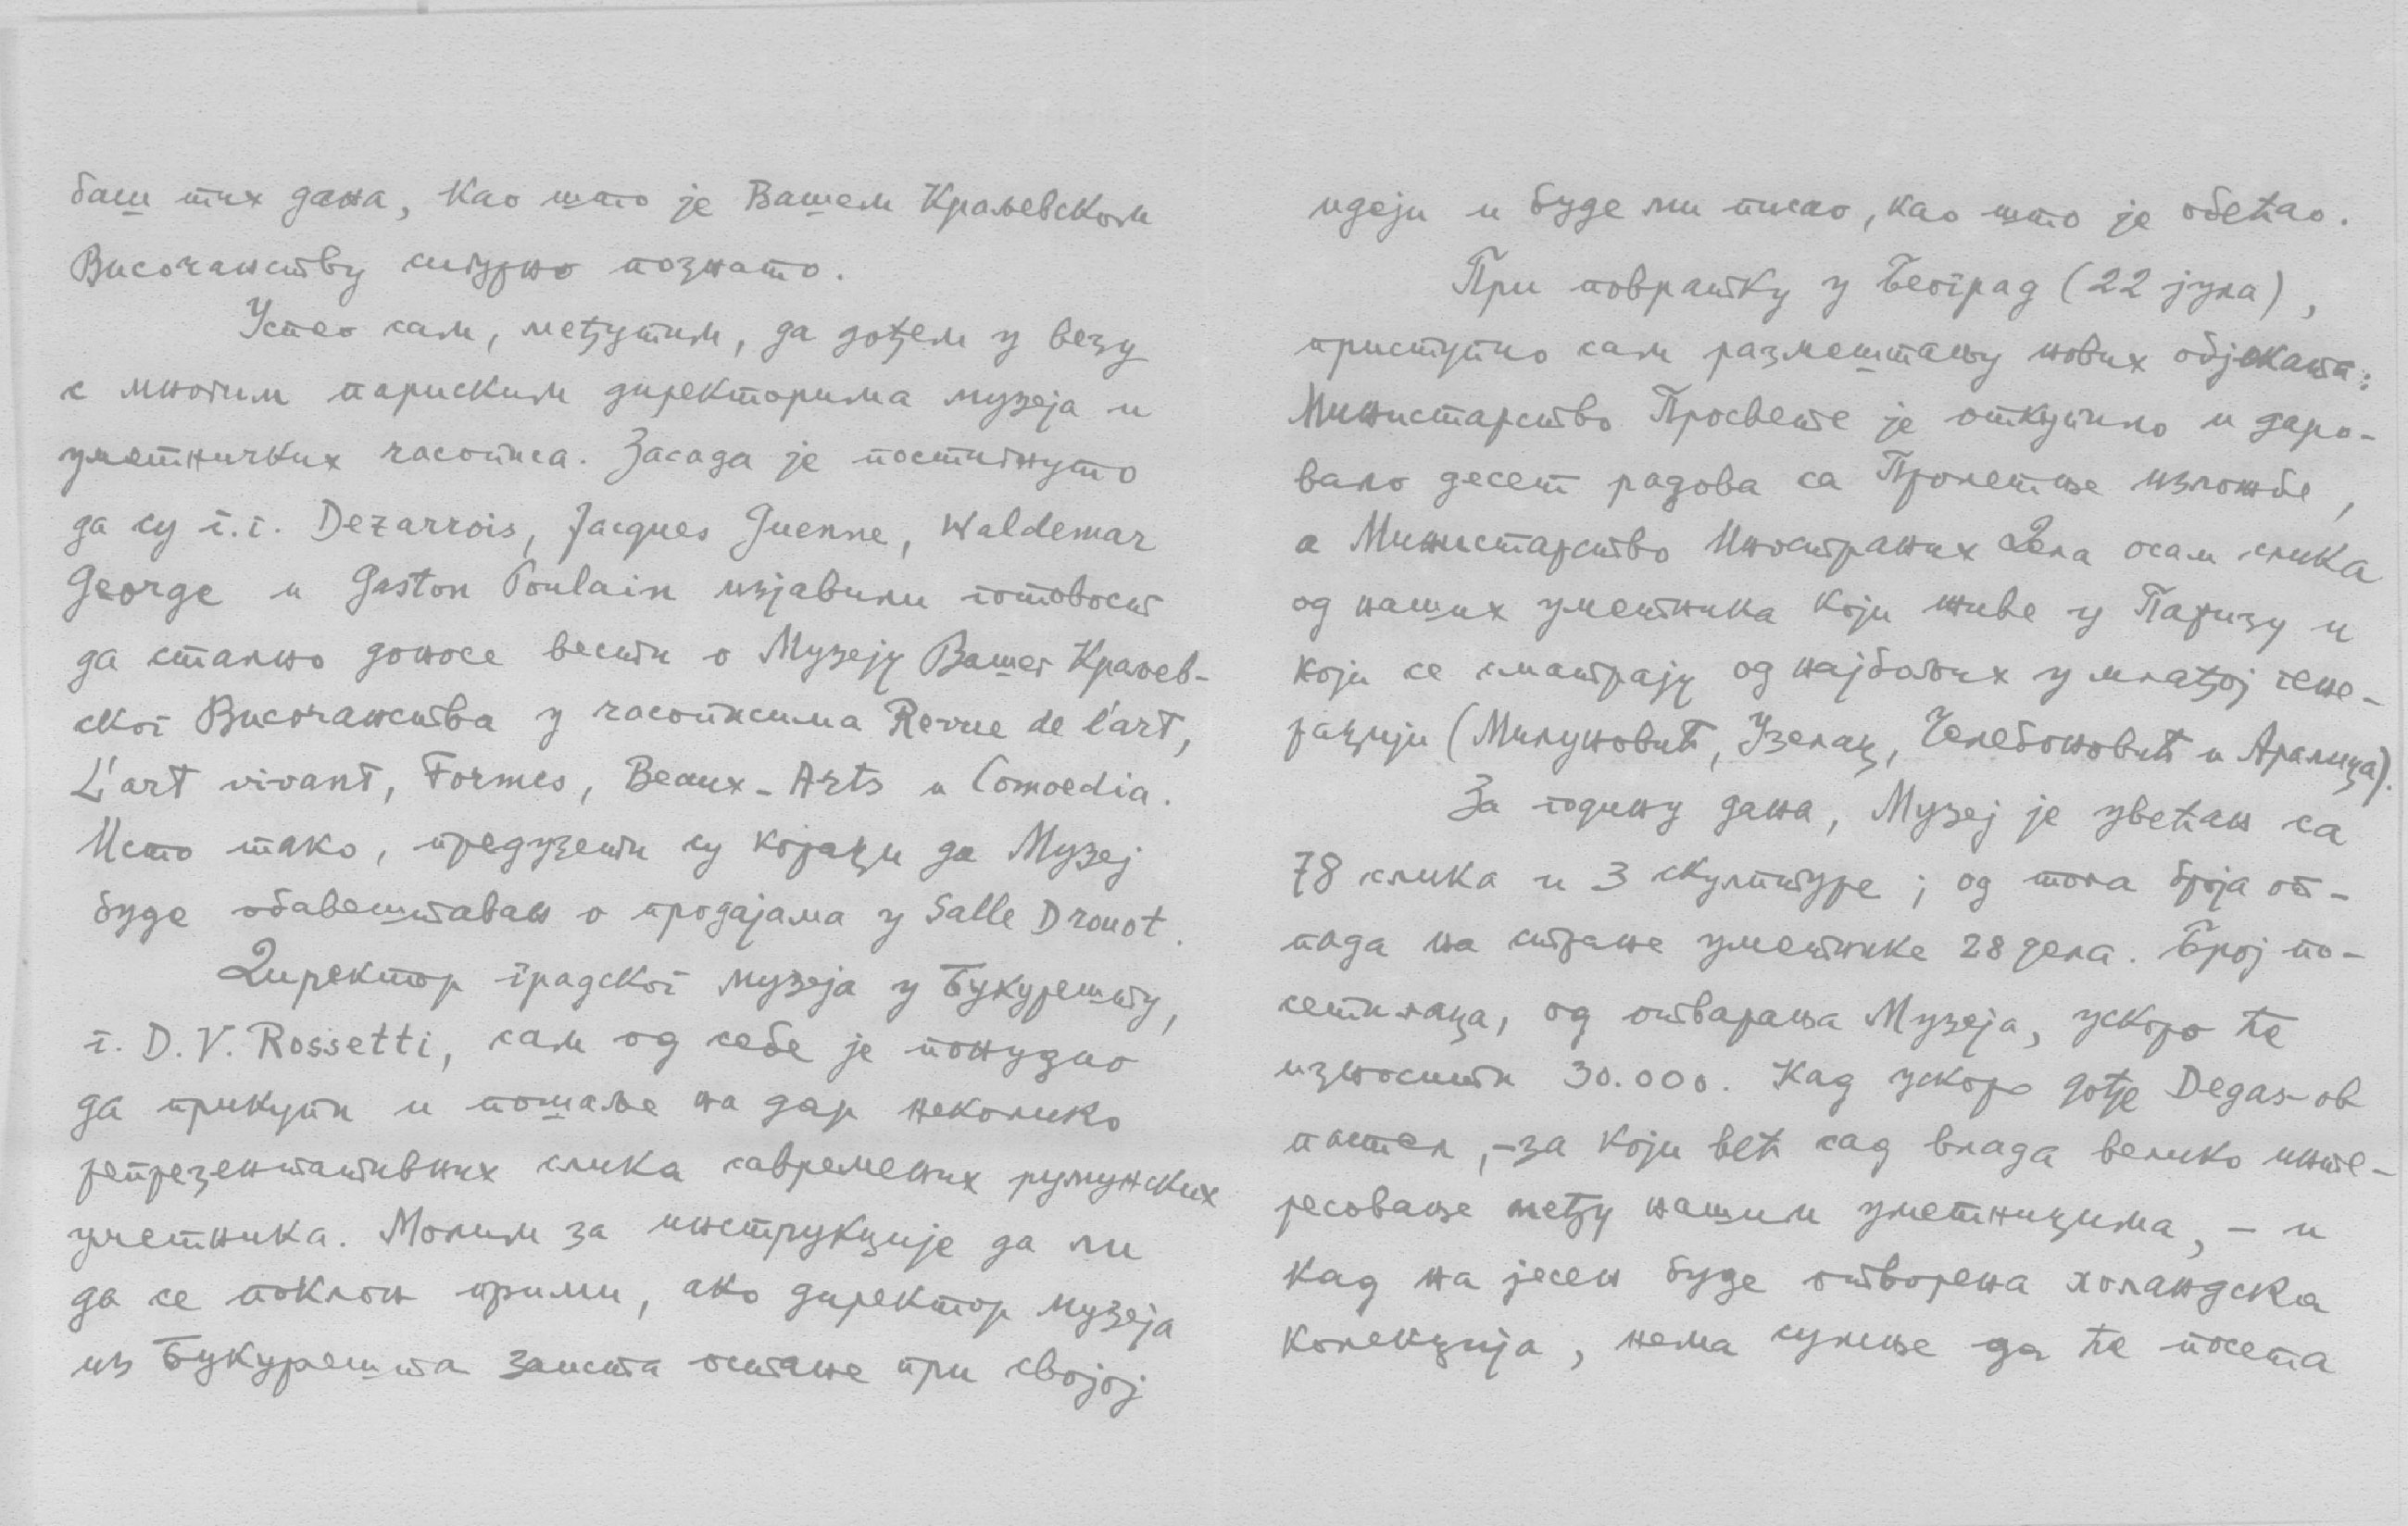 баш тих дана, као што је Вашем Краљевском
Височанству сигурно познато.
Успео сам, међутим, да дођем у везу
с многим париским директорима музеја и
уметничких часописа. Засада је постигнуто
да су г.г. Dezarrois, Jacques Guenne, Waldemar
George и Gaston Poulain изјавили готовост
да стално доносе вести о Музеју Вашег Краљев-
ског Височанства у часописима Revue de l'art,
L'art vivant, Formes, Beaux-Arts и Comoedia.
Исто тако, предузети су кораци да Музеј
буде обавештаван о продајама у Salle Drouot.
Директор градског музеја у Букурешту,
г. D. V. Rossetti, сам од себе је понудио
да прикупи и пошаље на дар неколико
репрезентативних слика савремених румунских
уметника. Молим за инструкције да ли
да се поклон прими, ако директор музеја
из Букурешта заиста остане при својој
идеји и буде ми писао, као што је обећао.
При повратку у Београд (22 јула),
приступио сам размештању нових објеката:
Министарство Просвете је откупило и даро-
вало десет радова са Пролетње изложбе,
а Министарство Иностраних Дела осам слика
од наших уметника који живе у Паризу и
који се сматрају од најбољих у млађој гене-
рацији (Милуновић, Узелац, Челебоновић и Аралица).
За годину дана, Музеј је увећан са
78 слика и 3 скулптуре; од тога броја от-
пада на стране уметнике 28 дела. Број по-
сетилаца, од отварања Музеја, ускоро ће
износити 30.000. Кад ускоро дође Degas-ов
пастел, - за који већ сад влада велико инте-
ресовање међу нашим уметницима, - и
кад на јесен буде отворена холандска
колекција, нема сумње да ће посета